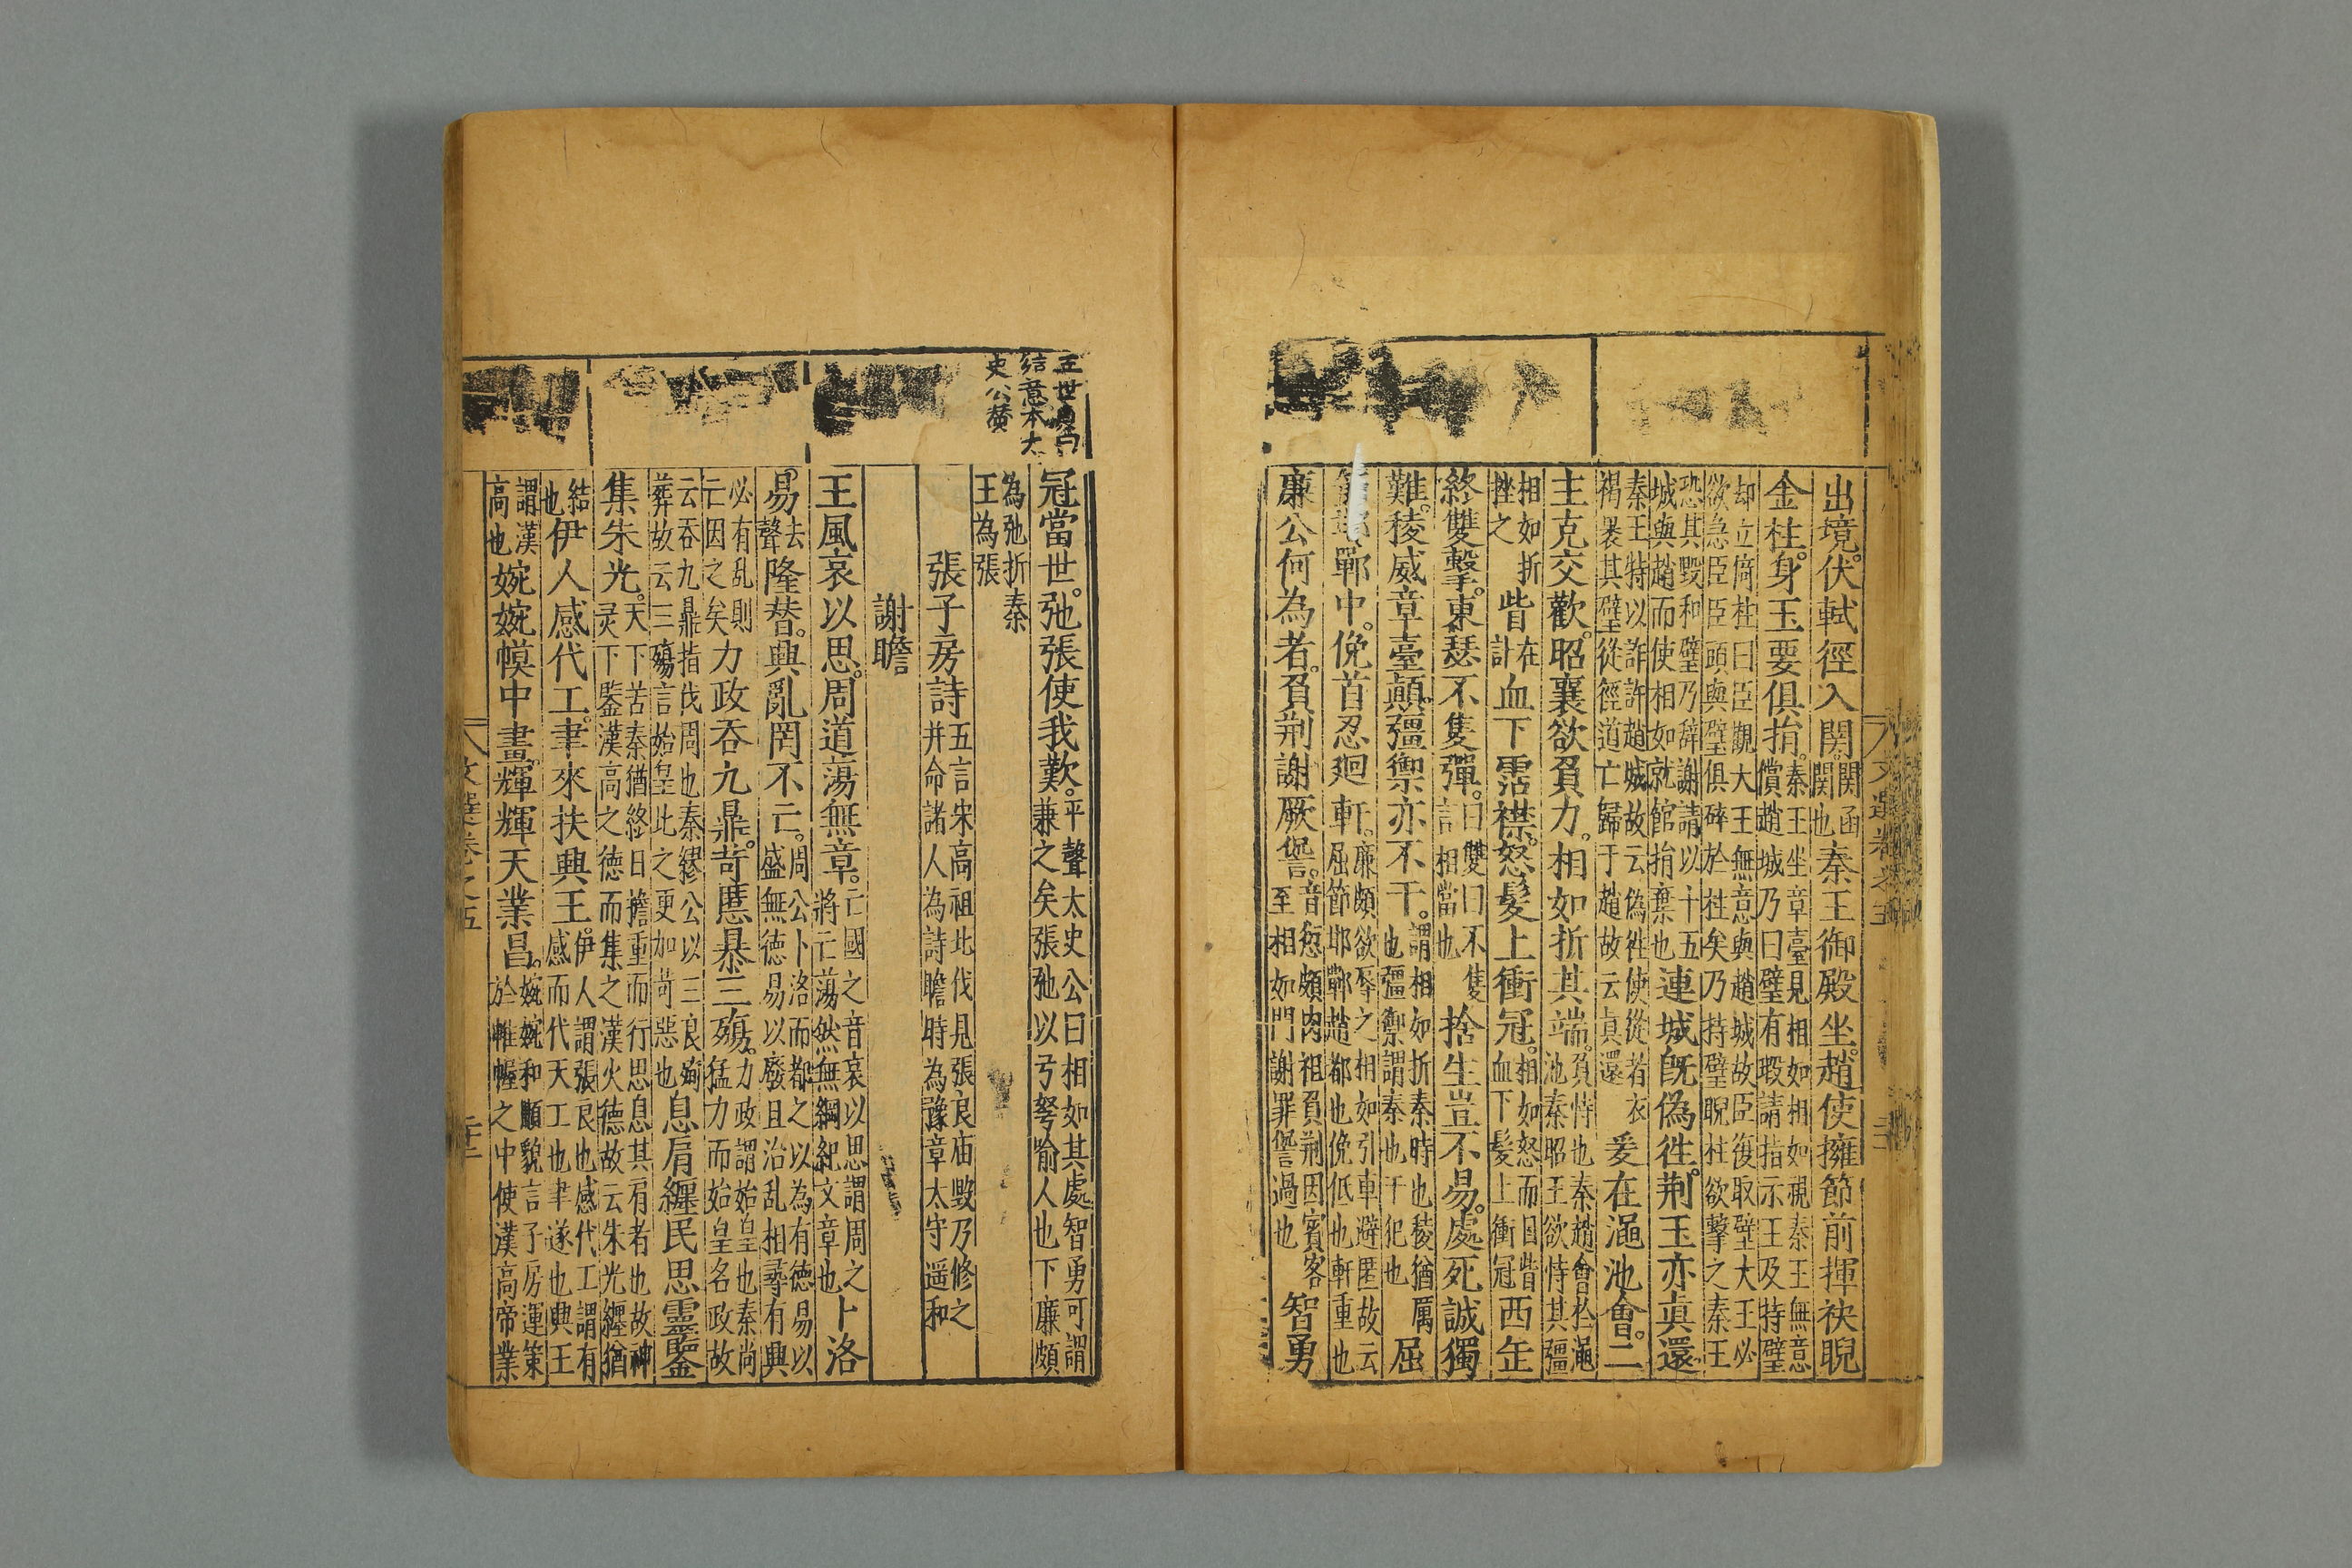 出境。伏軾徑入関。関函関也秦王御殿坐。趙使擁節前揮袂睨
金柱。身玉要俱捐。秦王坐章臺見相如相如視秦王無意償趙城乃曰璧有瑕請指示王及持璧
却立倚柱曰臣觀大王無意與趙城故臣復取璧大王必欲急臣臣頭與璧俱碎於柱矣乃持璧睨柱欲擊之秦王
恐其毀和璧乃辭謝請以十五城與趙而使相如就館捐棄也連城旣偽徃。荆玉亦真還
秦王特以詐許趙城故云偽徃使從者衣褐褁其璧從徑道亡歸于趙故云真還爰在澠池會。二
主克交歡。昭襄欲負力。相如折其端。負恃也秦趙會於澠池秦昭王欲恃其彊
相如折挫之眥在計血下霑襟。怒髮上衝冠。相如怒而目眥血下髮上衝冠西缶
終雙擊。東瑟不隻彈。曰雙曰不隻言相當也捨生豈不易。處死誠獨
難。稜威章臺顛。彊禦亦不干。謂相如折秦時也稜猶厲也彊禦謂秦也干犯也屈
節邯鄲中。俛首忍廻軒。廉頗欲辱之相如引車避匿故云屈節邯鄲趙都也俛低也軒重也
廉公何為者。負荆謝厥諐。音愆頗肉袒負荆因賓客至相如門謝罪諐過也智勇
冠當世。弛張使我歎。平聲太史公曰相如其處智勇可謂兼之矣張弛以弓弩喻人也下廉頗
為弛折秦王為張
張子房詩五言宋高祖北伐見張良庙毀乃修之并命諸人為詩瞻時為豫章太守遥和
謝瞻
王風哀以思。周道蕩無章。亡國之音哀以思謂周之將亡蕩然無綱紀文章也卜洛
易去聲隆替。興亂罔不亡。周公卜洛而都之以為有德易以盛無德易以廢且治乱相尋有興
必有乱則亡因之矣力政吞九鼎。苛慝暴三殤。力政謂始皇也秦尚猛力而始皇名政故
云吞九鼎指伐周也秦繆公以三良殉葬故云三殤言始皇此之更加苛惡也息肩纏民思靈鑒
集朱光。天下苦秦猶終日擔重而行思息其肩者也故神灵下鑒漢高之德而集之漢火德故云朱光纏猶
結也伊人感代工。聿來扶興王。伊人謂張良也感代工謂有感而代天工也聿遂也興王
謂漢高也婉婉幙中畫。輝輝天業昌。婉婉和順貌言子房運策於帷幄之中使漢高帝業